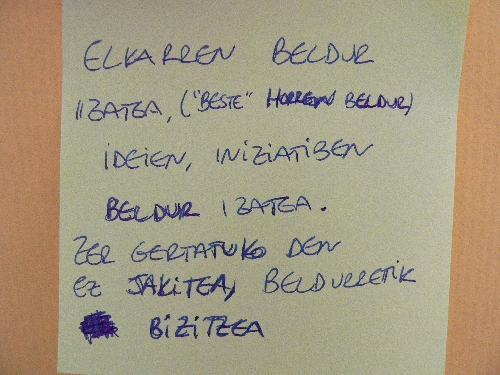 ELKARREN BELDUR
IZATEA, ("BESTE" HORREN BELDUR)
IDEIEN, INIZIATIBEN
BELDUR IZATEA.
ZER GERTATUKO DEN
EZ JAKITEA, BELDURRETIK
BIZITZEA